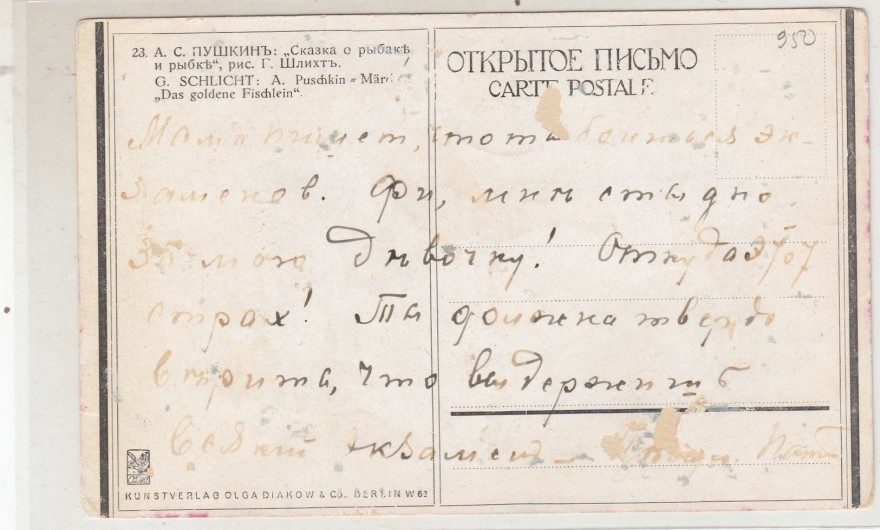 950
23. А. С. ПУШКИНЪ: „Сказка о рыбакѣ
и рыбкѣ“, рис. Г. Шлихтъ.
G. SCHLICHT: A. Puschkin - Märch
„Das goldene Fischlein“.
ОТКРЫТОЕ ПИСЬМО
CARTE POSTALE
Мама пишет, что ты боишься эк-
заменов. Фи, мнѣ стыдно
за мою дѣвочку! Откуда этот
страх! Ты должна твердо
вѣрить, что выдержишь
Всякій экзамен –
KUNSTVERLAG OLGA DIAKOW & Co. BERLIN W 62